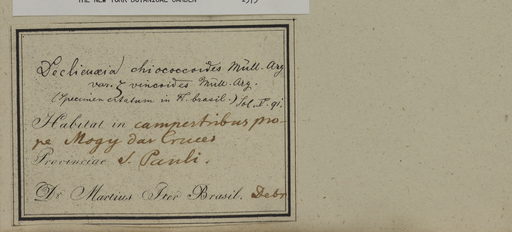 THE NEW YORK BOTANICAL GARDEN
Declieuxia chiococcoides Müll-Arg
var. ξ vincoides Müll-Arg.
(Specimen citatum in Fl. brasil.)
Habitat in campestribus pro-
pe Mogy das Cruces
Provinciae S. Pauli.
Dr Martius Iter Brasil. Debr